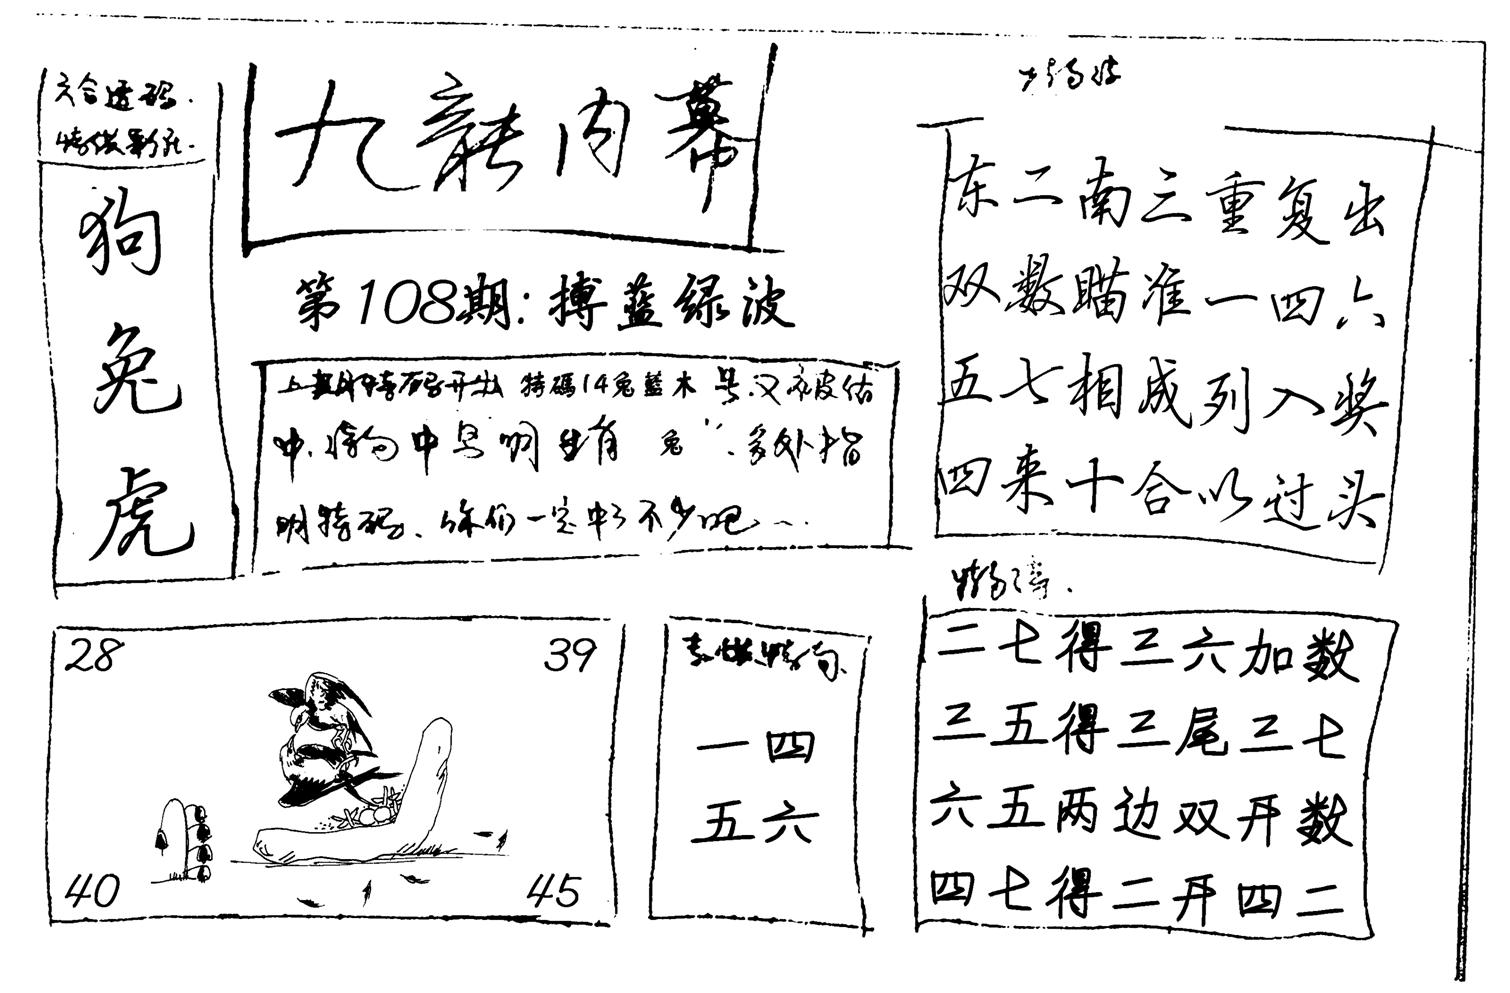 六合透码.
狗
兔
虎
九龍内幕
第108期:搏蓝绿波
上期特码开出 特碼14兔藍木 号.又被估
中.特 中 明生肖 兔 .多外指
明特码、你们一定中了不少吧
东二南三重复出
双数瞄准一四六
五七相成列入奖
四来十合以过头
二七得三六加数
三五得三尾三七
六五两边双开数
四七得二开四二
一四
五六
28
39
40
45